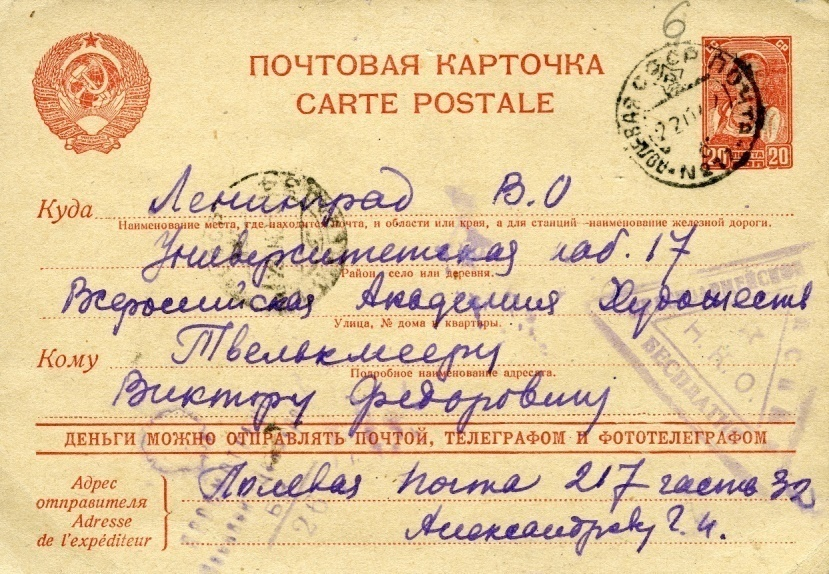 6
ПОЧТОВАЯ КАРТОЧКА
CARTE POSTALE
20 ПОЧТА 20
Куда Ленинград В.О
Наименование места, где находится почта, и области или края, а для станций—наименование железной дороги.
Университетская наб. 17
Район, село или деревня.
Всероссийская Академия Художеств
Улица, № дома и квартиры.
Кому Твелькмееру
Подробное наименование адресата.
Виктору Федоровичу
Н.К.О.
БЕСПЛАТНО
ДЕНЬГИ МОЖНО ОТПРАВЛЯТЬ ПОЧТОЙ, ТЕЛЕГРАФОМ И ФОТОТЕЛЕГРАФОМ
Адрес отправителя
Adresse de l'expéditeur
Полевая почта 217 часть 32